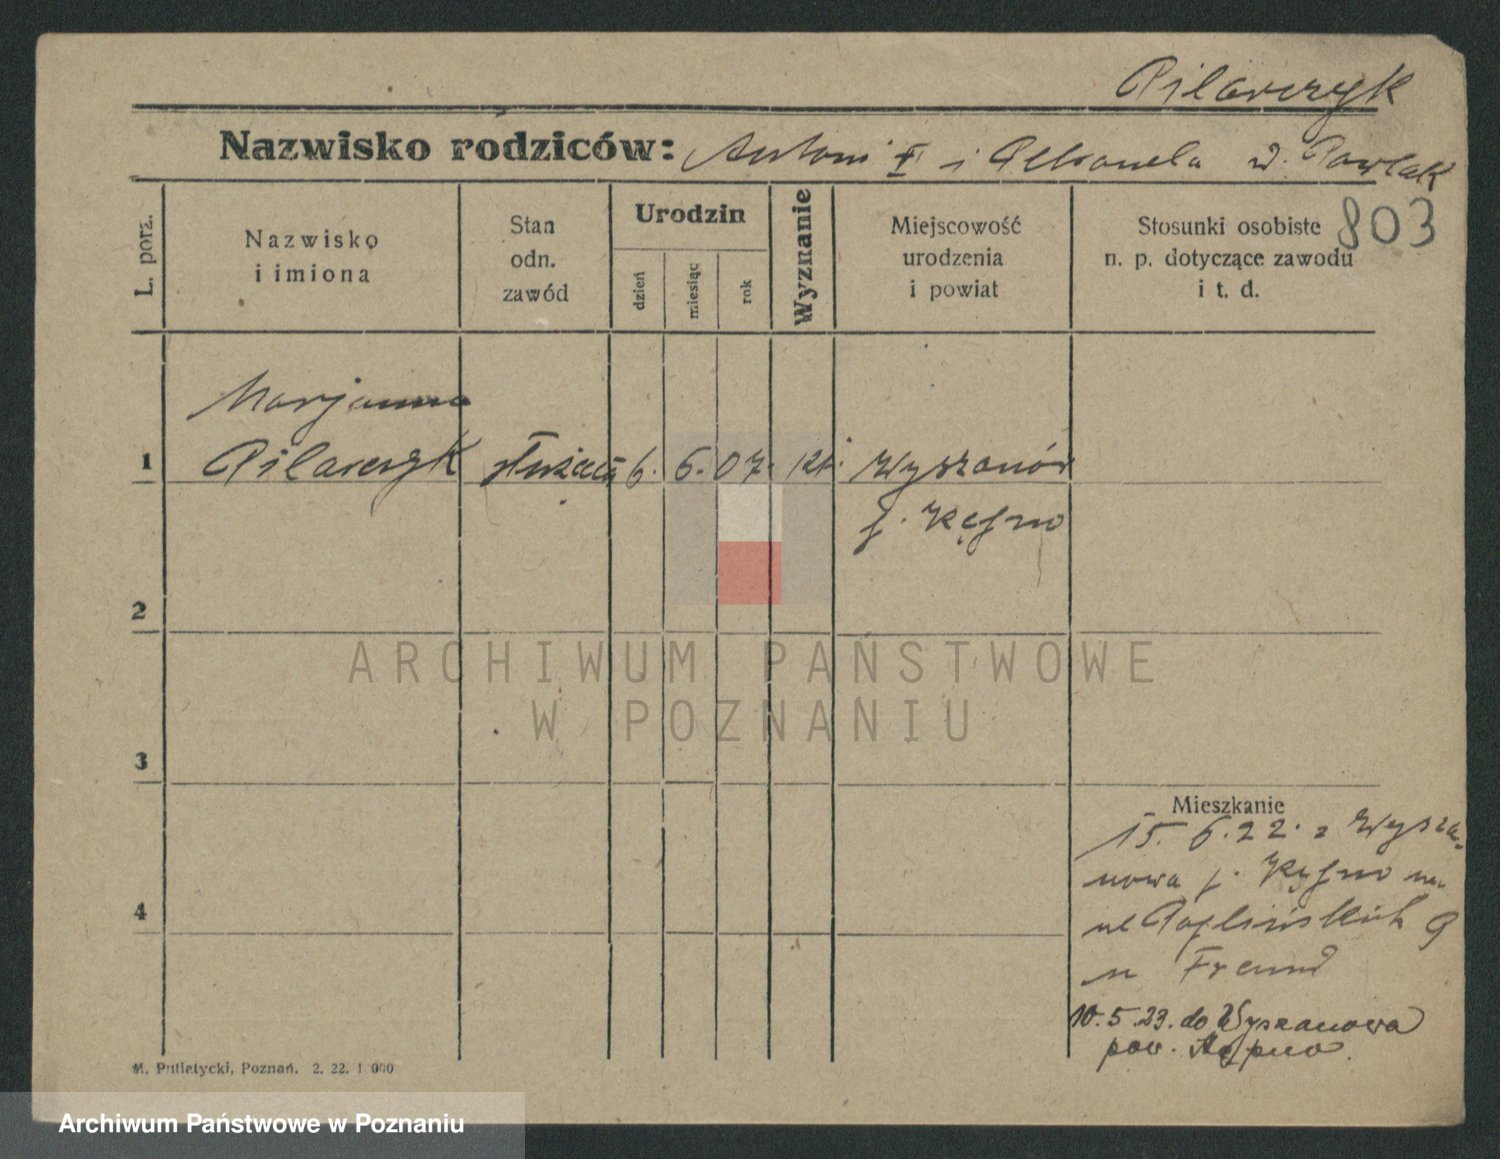 Pilarczyk
Nazwisko rodziców: Antoni i Petronela d. Pawlak
803
L. porz.
Nazwisko
i imiona
Stan
odn.
zawód
Urodzin
dzień
miesiąc
rok
Wyznanie
Miejscowość
urodzenia
i powiat
Stosunki osobiste
n. p. dotyczące zawodu
i t. d.
Marjanna
1 Pilarczyk służąca 6. 6. 07. kt. Wyszanów
p. Kępno
2
3
4
Mieszkanie
15. 6. 22. z Wysza-
nowa p. Kępno na
ul 9
u Freund
10. 5. 23. do Wyszanowa
pow. Kępno.
M. Putiatycki, Poznań. 2. 22. 1 000
ARCHIWUM PAŃSTWOWE
W POZNANIU
Archiwum Państwowe w Poznaniu